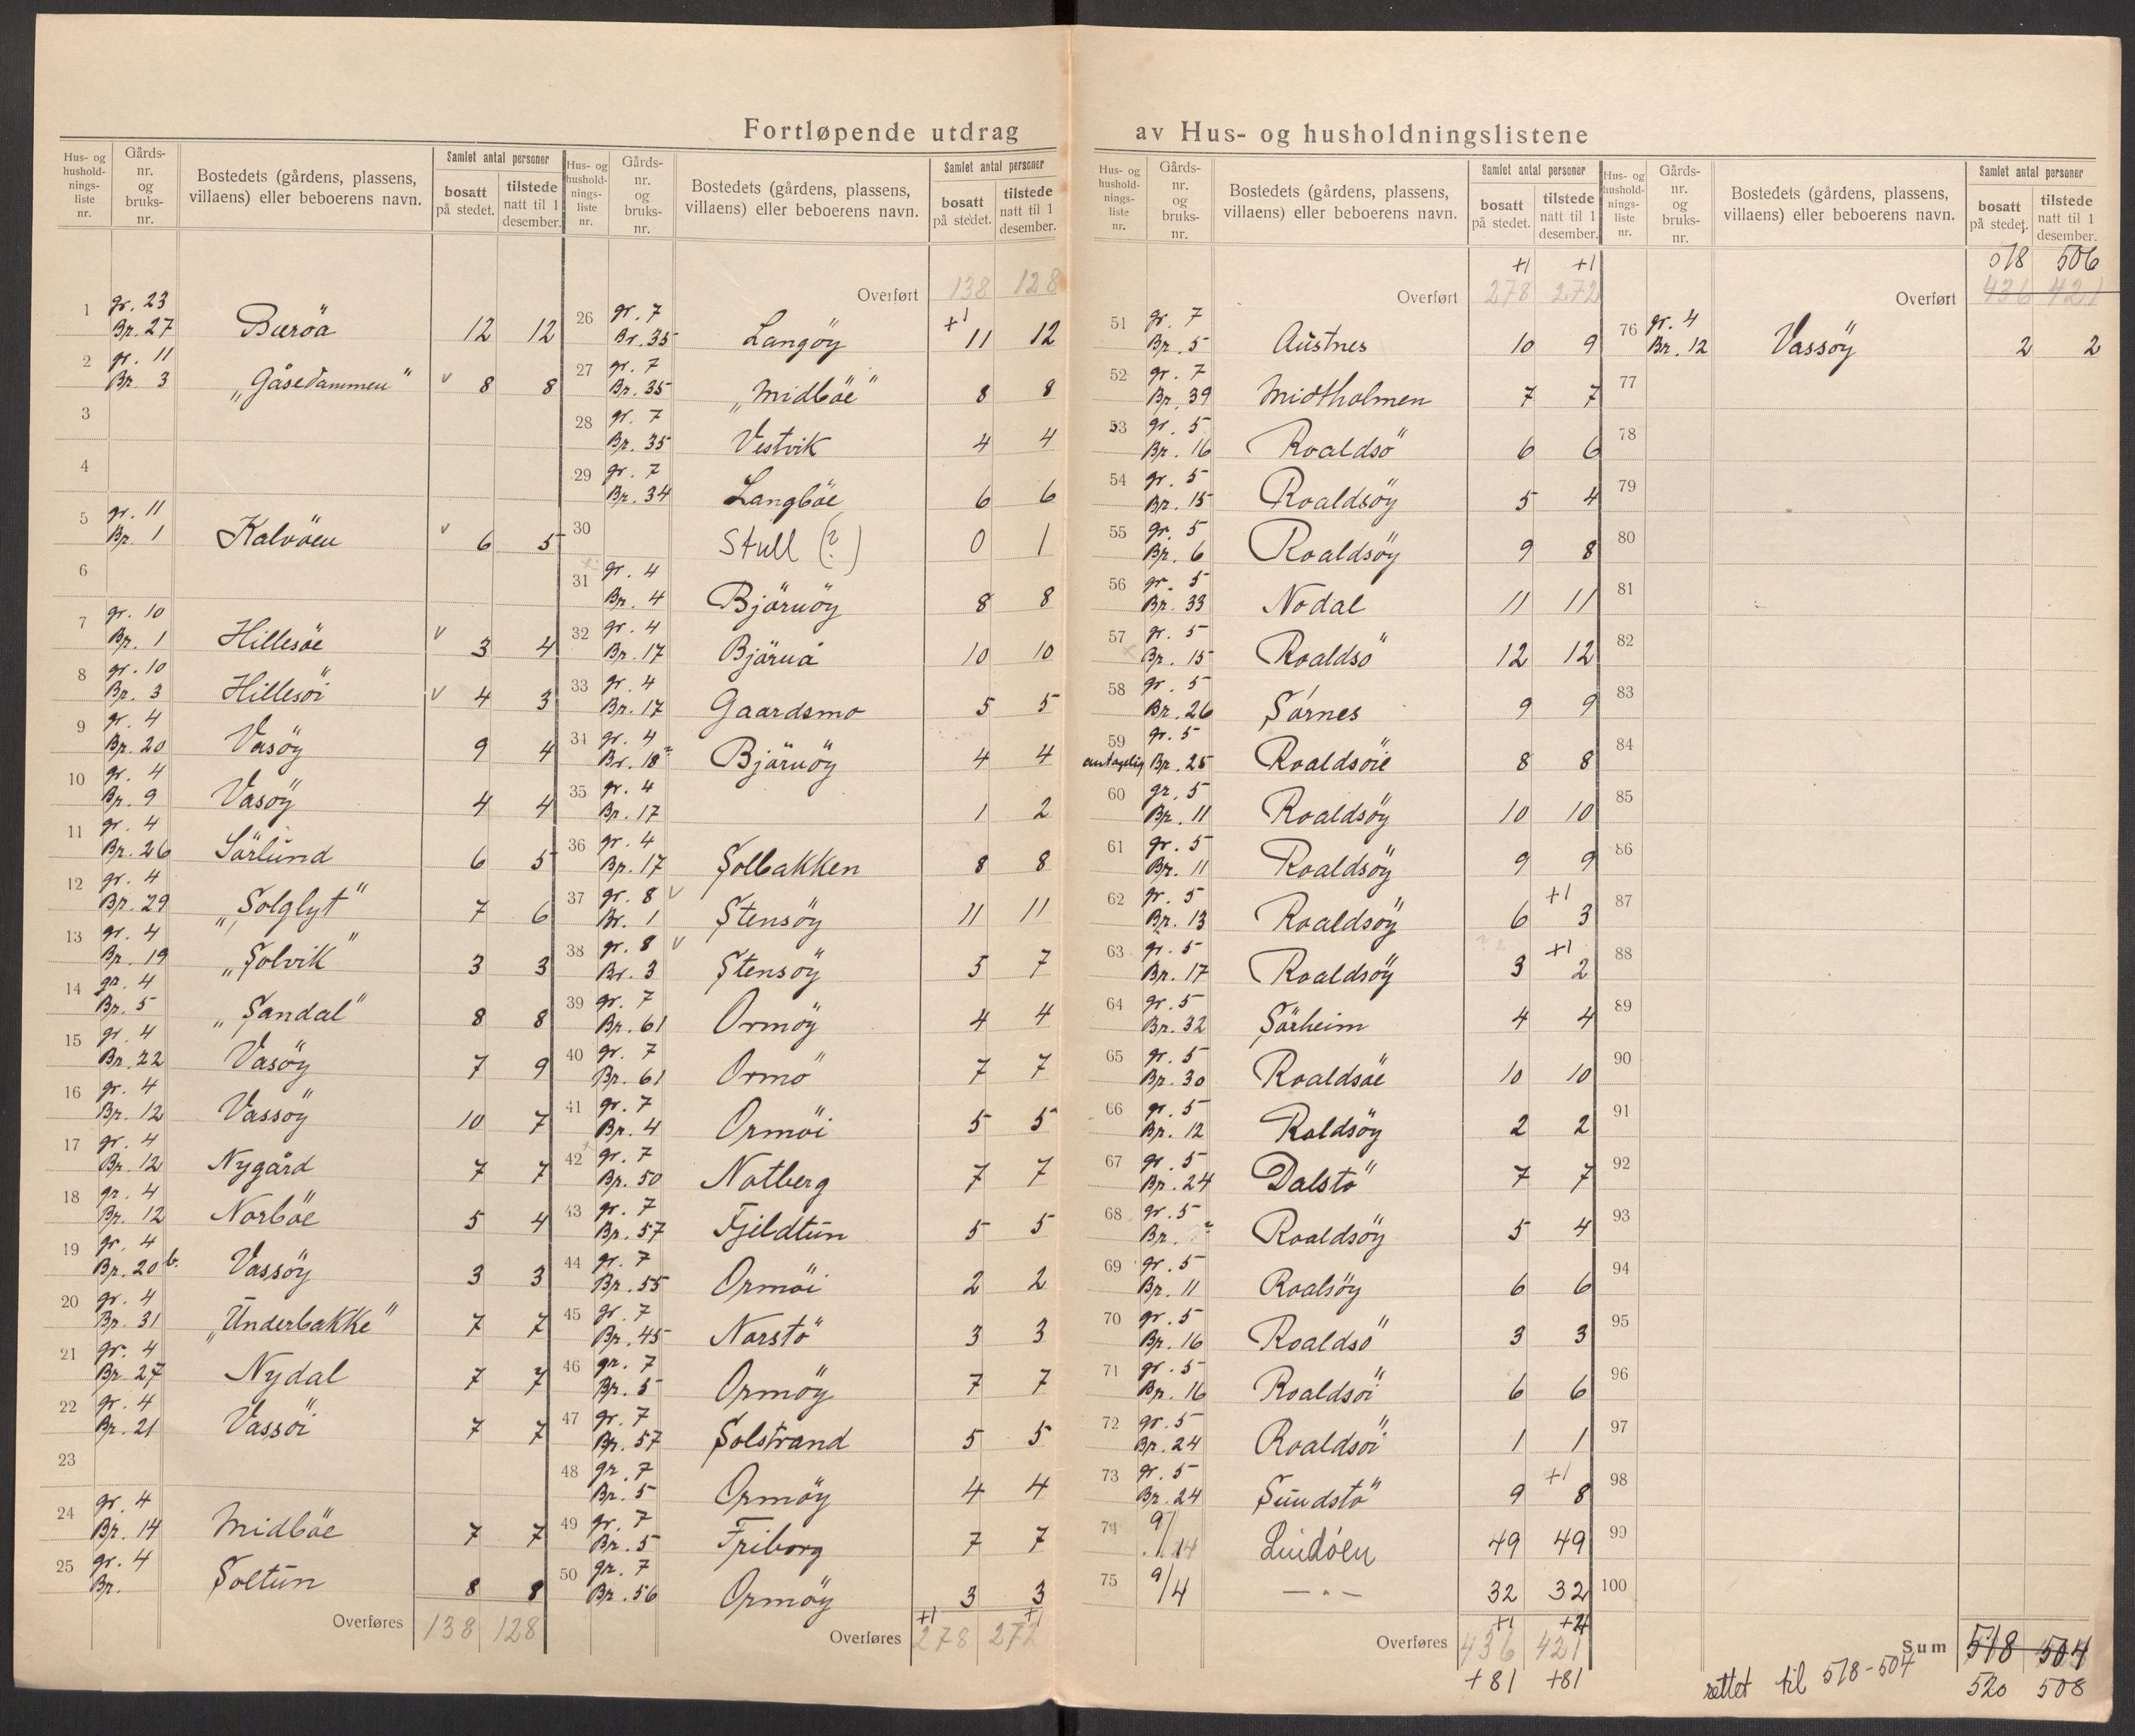 Fortløpende utdrag av Hus- og husholdningslistene
Hus- og hushold-nings-liste nr. Gårds-nr. og bruks-nr. Bostedets (gårdens, plassens, villaens) eller beboerens navn. Samlet antal personer bosatt på stedet. tilstede natt til 1 desember.
1 gr. 23 Br. 27 Buröa 12 12
2 gr. 11 Br. 3 „Gåsedammen" v 8 8
3
4
5 gr. 11 Br. 1 Kalvöen v 6 5
6
7 gr. 10 Br. 1 Hillesöe v 3 4
8 gr. 10 Br. 3 Hillesöi v 4 3
9 gr. 4 Br. 20 Vasöy 9 4
10 gr. 4 Br. 9 Vasöy 4 4
11 gr. 4 Br. 26 Sörlund 6 5
12 gr. 4 Br. 29 „Solglyt" 7 6
13 gr. 4 Br. 19 „Solvik" 3 3
14 gr. 4 Br. 5 „Sandal" 8 8
15 gr. 4 Br. 22 Vasöy 7 9
16 gr. 4 Br. 12 Vassöy 10 7
17 gr. 4 Br. 12 Nygård 7 7
18 gr. 4 Br. 12 Norböe 5 4
19 gr. 4 Br. 20 b. Vassöy 3 3
20 gr. 4 Br. 31 „Underbakke" 7 7
21 gr. 4 Br. 27 Nydal 7 7
22 gr. 4 Br. 21 Vassöi 7 7
23
24 gr. 4 Br. 14 Midböe 7 7
25 gr. 4 Br. Soltun 8 8
Overføres 138 128
Hus- og hushold-nings-liste nr. Gårds-nr. og bruks-nr. Bostedets (gårdens, plassens, villaens) eller beboerens navn. Samlet antal personer bosatt på stedet. tilstede natt til 1 desember.
Overført 138 128
26 gr. 7 Br. 35 Langöy +1 11 12
27 gr. 7 Br. 35 „Midböe" 8 8
28 gr. 7 Br. 35 Vestvik 4 4
29 gr. 7 Br. 34 Langböe 6 6
30 Stull (?) 0 1
31 gr. 4 Br. 4 Björnöy 8 8
32 gr. 4 Br. 17 Björnö 10 10
33 gr. 4 Br. 17 Gaardsmo 5 5
34 gr. 4 Br. 18 Björnöy 4 4
35 gr. 4 Br. 17 1 2
36 gr. 4 Br. 17 Solbakken 8 8
37 gr. 8 Br. 1 v Stensöy 11 11
38 gr. 8 Br. 3 v Stensöy 5 7
39 gr. 7 Br. 61 Ormöy 4 4
40 gr. 7 Br. 61 Ormö 7 7
41 gr. 7 Br. 4 Ormöi 5 5
42 gr. 7 Br. 50 Notberg 7 7
43 gr. 7 Br. 57 Fjeldtun 5 5
44 gr. 7 Br. 55 Ormöi 2 2
45 gr. 7 Br. 45 Norstö 3 3
46 gr. 7 Br. 5 Ormöy 7 7
47 gr. 7 Br. 57 Solstrand 5 5
48 gr. 7 Br. 5 Ormöy 4 4
49 gr. 7 Br. 5 Friborg 7 7
50 gr. 7 Br. 56 Ormöy 3 3
+1 +1
Overføres 278 272
Hus- og hushold-nings-liste nr. Gårds-nr. og bruks-nr. Bostedets (gårdens, plassens, villaens) eller beboerens navn. Samlet antal personer bosatt på stedet. tilstede natt til 1 desember.
+1 +1
Overført 278 272
51 gr. 7 Br. 5 Austnes 10 9
52 gr. 7 Br. 39 Midtholmen 7 7
53 gr. 5 Br. 16 Roaldsö 6 6
54 gr. 5 Br. 15 Roaldsöy 5 4
55 gr. 5 Br. 6 Roaldsöy 9 8
56 gr. 5 Br. 33 Nodal 11 11
57 gr. 5 Br. 15 Roaldsö 12 12
58 gr. 5 Br. 26 Sörnes 9 9
59 antagelig gr. 5 Br. 25 Roaldsöie 8 8
60 gr. 5 Br. 11 Roaldsöy 10 10
61 gr. 5 Br. 11 Roaldsöy 9 9
62 gr. 5 Br. 13 Roaldsöy 6 +1 3
63 gr. 5 Br. 17 Roaldsöy 3 +1 2
64 gr. 5 Br. 32 Sörheim 4 4
65 gr. 5 Br. 30 Roaldsöe 10 10
66 gr. 5 Br. 12 Roldsöy 2 2
67 gr. 5 Br. 24 Dalstö 7 7
68 gr. 5 Br. ? Roaldsöy 5 4
69 gr. 5 Br. 11 Roalsöy 6 6
70 gr. 5 Br. 16 Roaldsö 3 3
71 gr. 5 Br. 16 Roaldsöi 6 6
72 gr. 5 Br. 24 Roaldsöi 1 1
73 gr. 5 Br. 24 Sundstö 9 +1 8
74 9/ Lindöen 49 49
75 9/4 — " — 32 32
+1 +4
Overføres 436 421
+81 +81
Hus- og hushold-nings-liste nr. Gårds-nr. og bruks-nr. Bostedets (gårdens, plassens, villaens) eller beboerens navn. Samlet antal personer bosatt på stedet. tilstede natt til 1 desember.
518 506
Overført 436 421
76 gr. 4 Br. 12 Vassöy 2 2
77
78
79
80
81
82
83
84
85
86
87
88
89
90
91
92
93
94
95
96
97
98
99
100
Sum 518 504
rettet til 518-504 520 508